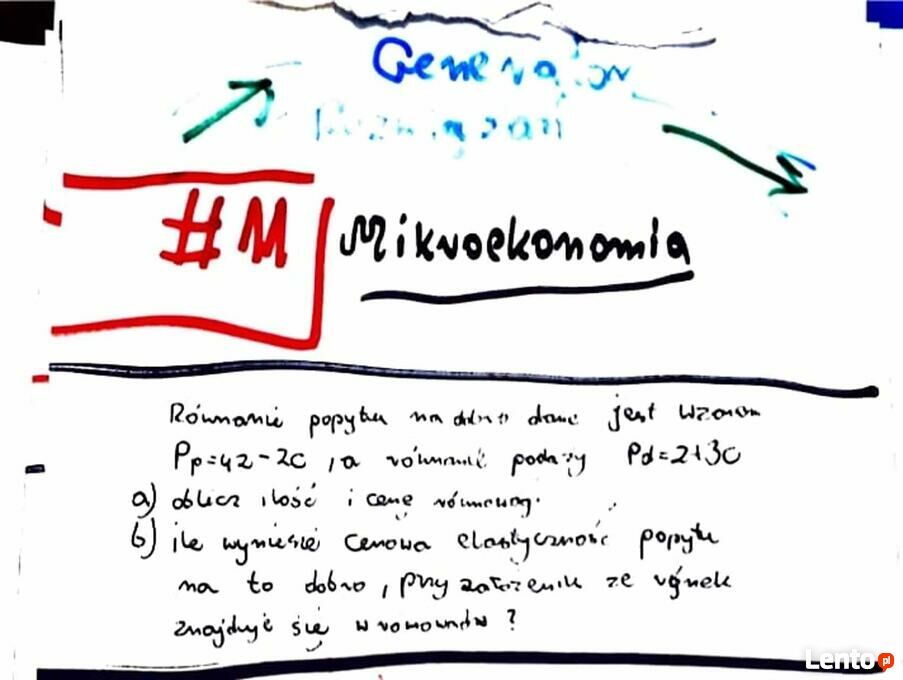 Generator
Rozwiązań
#M
Mikroekonomia
Równanie popytu na dobro dane jest wzorem
Pp=42-2c , a równanie podaży Pd=2+3c
a) oblicz ilość i cenę równowag.
b) ile wyniesie cenowa elastyczność popytu
na to dobro, przy założeniu ze rynek
znajduje się w równowadze?
Lento.pl